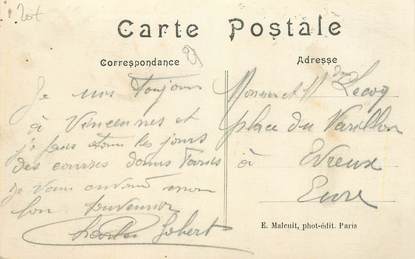 Carte Postale
Correspondance
Adresse
Je suis toujours
à Vincennes et
je fais tous les jours
des courses dans
Je vous envoie mon
bon souvenir
Robert
Monsieur et Mme Lecoq
place du
à Evreux
Eure
E. Malcuit, phot-édit. Paris